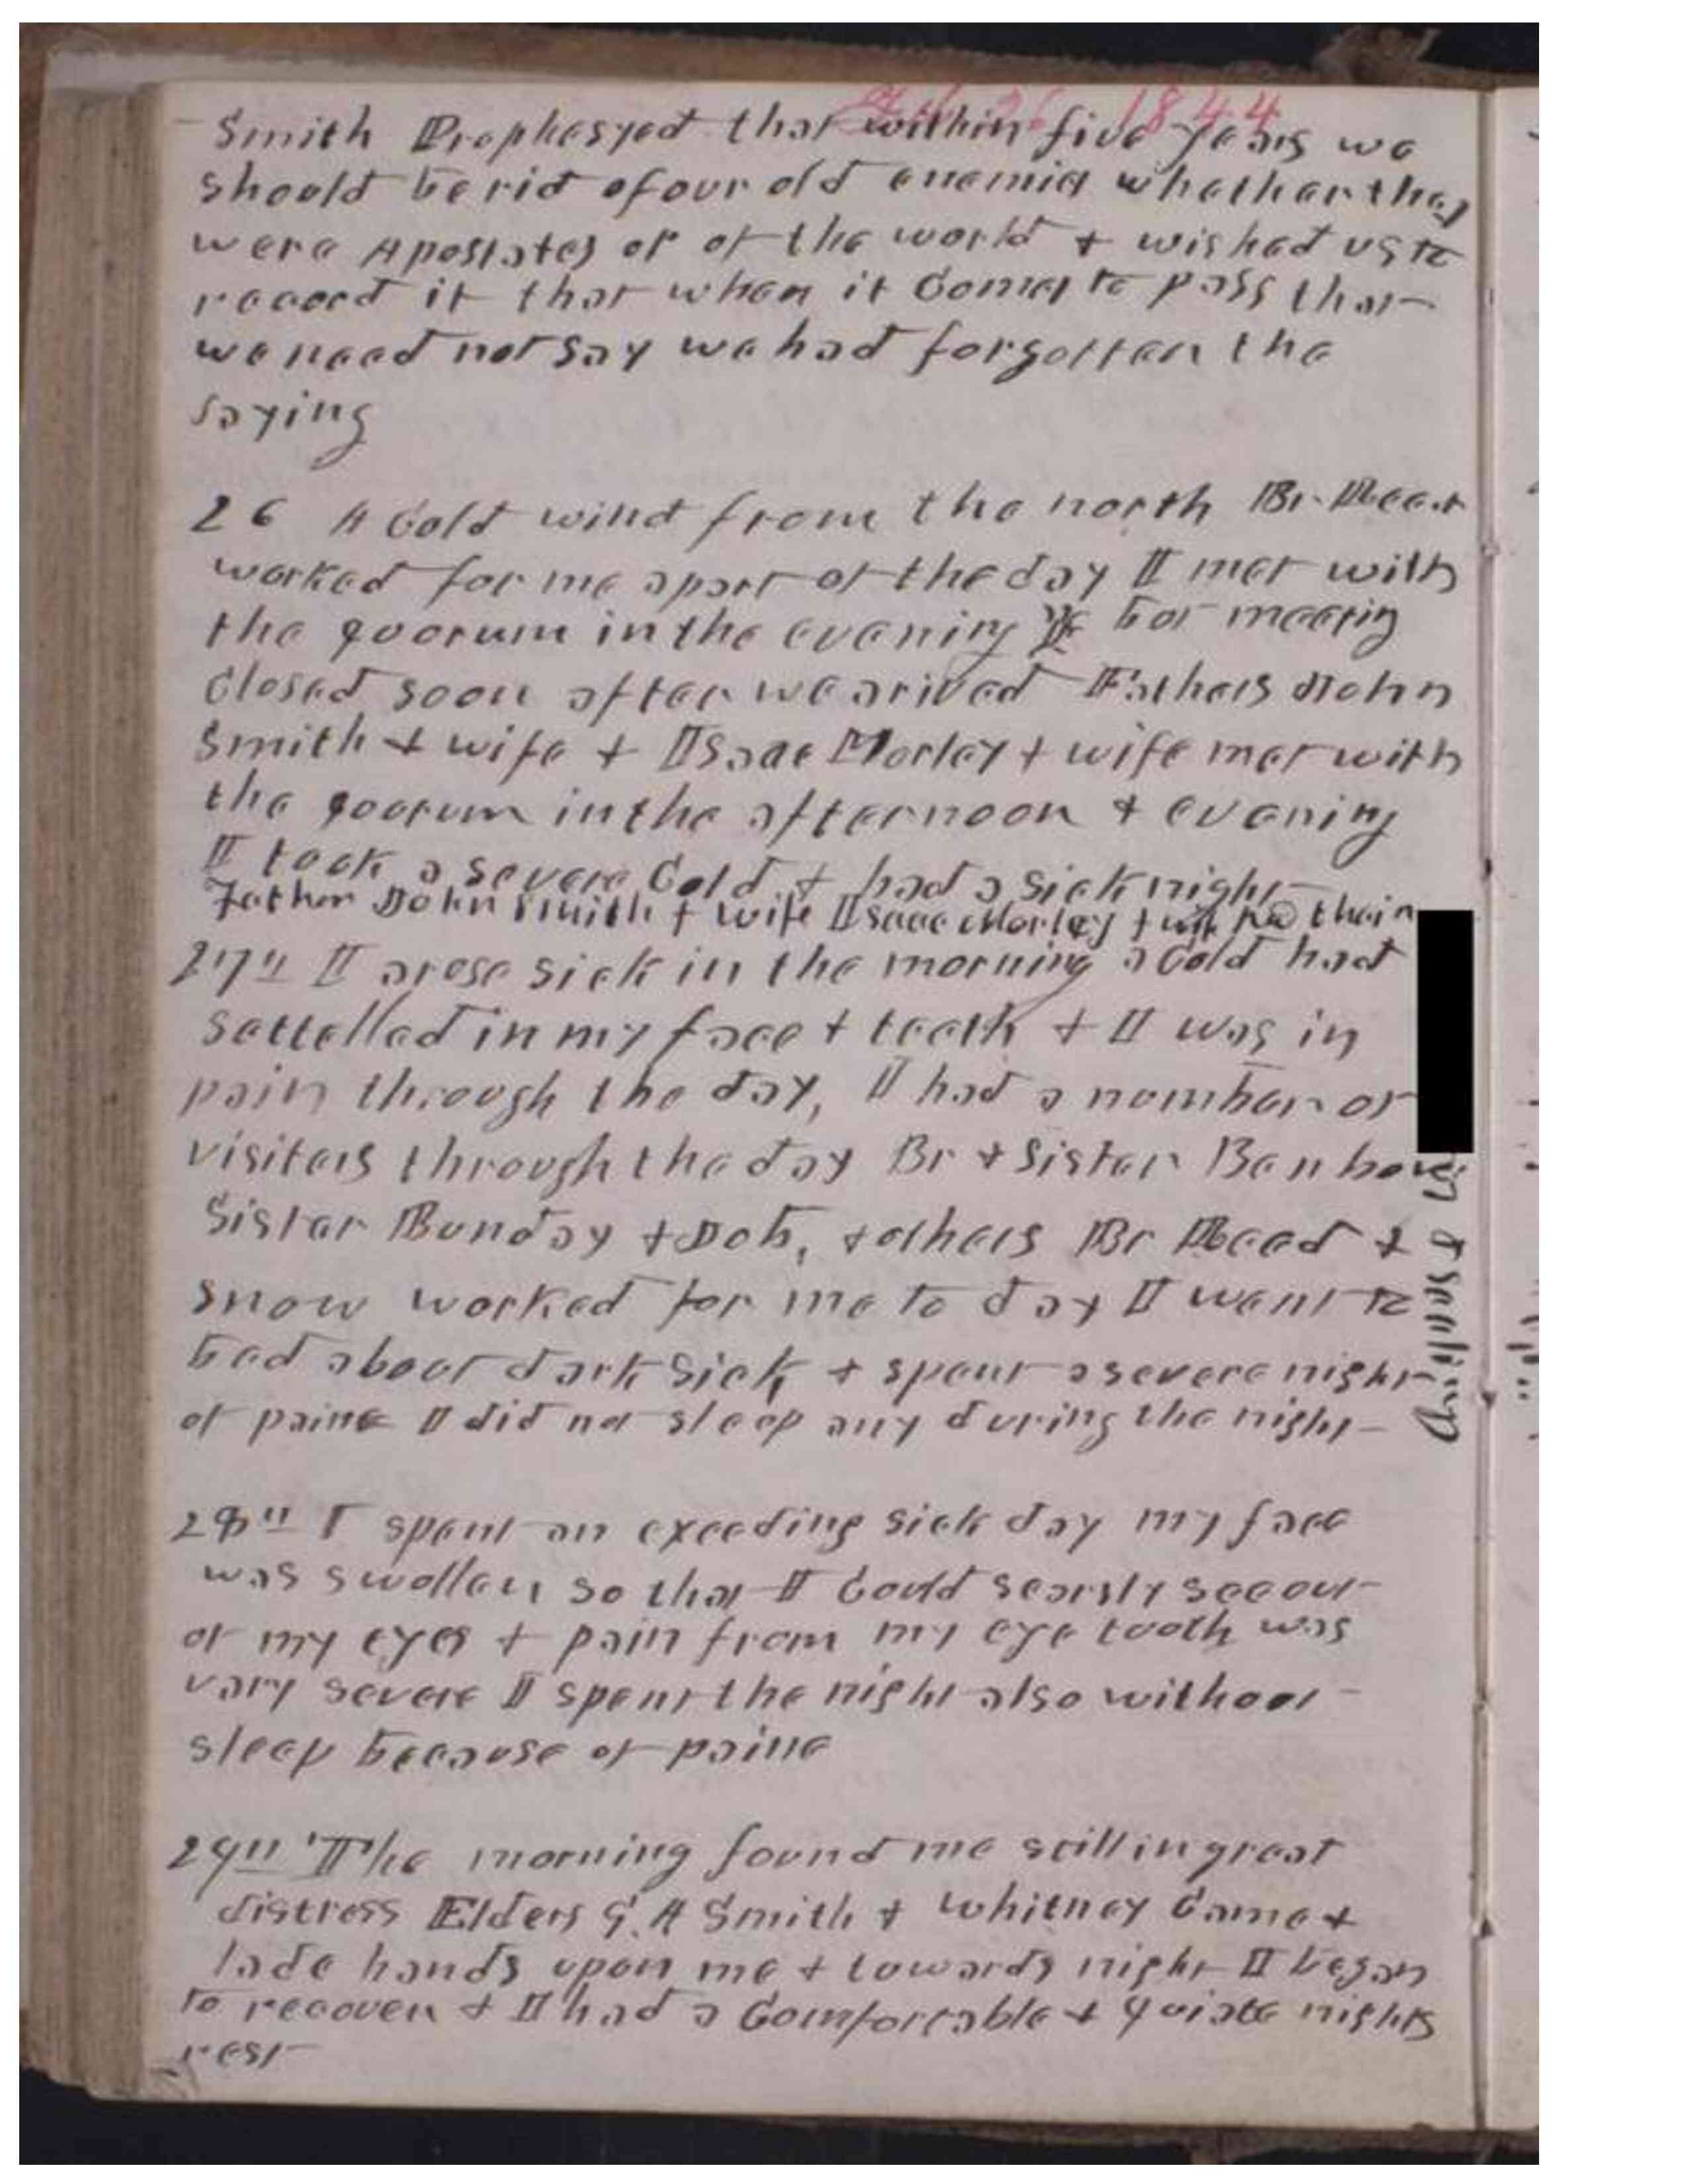 26 1844
Smith Prophesyed that within five years we
should be rid of our old enemies whether they
were Apostates or of the world & wished us to
record it that when it comes to pass that
we need not say we had forgotten the
saying
26 A cold wind from the north Br Reed
worked for me a part of the day I met with
the quorum in the evening bot meetig
closed soon after we arived Fathers John
Smith & wife & Isaac Morley & wife met with
the quorum in the afternoon & evening
I took a severe cold & had a sick night
Father John Smith & wife Isaac Morley & wife their
27th I arose sick in the morning a cold had
settelled in my face & teeth & I was in
pain through the day, I had a number of
visiters through the day Br & Sister Benbow
Sister Bunday & Dob, & others Br Reed &
Snow worked for me to day I went to
bed about dark sick & spent a severe night
of paine I did not sleep any during the night
28th I spent an exceeding sick day my face
was swollen so that I could scarsly see out
of my eyes & pain from my eye tooth was
vary severe I spent the night also without
sleep because of paine
29th The morning found me still in great
distress Elders G. A Smith & Whitney came &
lade hands upon me & towards night I began
to recover & I had a comfortable & quiate nights
rest